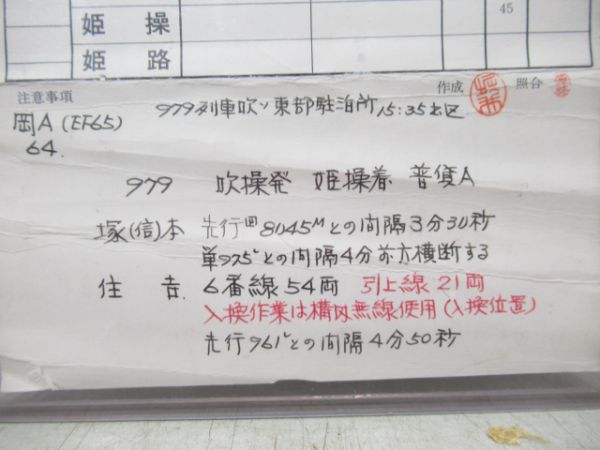 45
姫操
姫路
注意事項 作成 照合
岡A (EF65) 979列車吹ソ東部駐泊所 15:35出区
64.
979 吹操発 姫操着 普貨A
塚(信)本 先行回8045Mとの間隔3分30秒
単975レとの間隔4分前方横断する
住吉. 6番線54両 引上線21両
入換作業は構内無線使用(入換位置)
先行961レとの間隔4分50秒